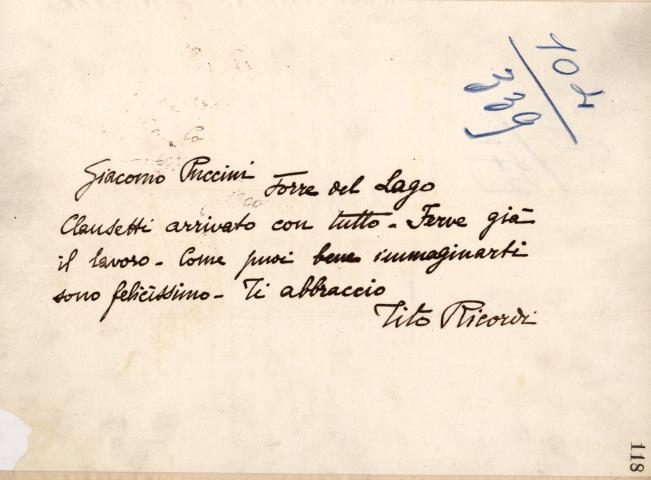 102
339
Giacomo Puccini Torre del Lago
Clausetti arrivato con tutto - Ferve già
il lavoro - Come puoi bene immaginarti
sono felicissimo - Ti abbraccio
Tito Ricordi
118